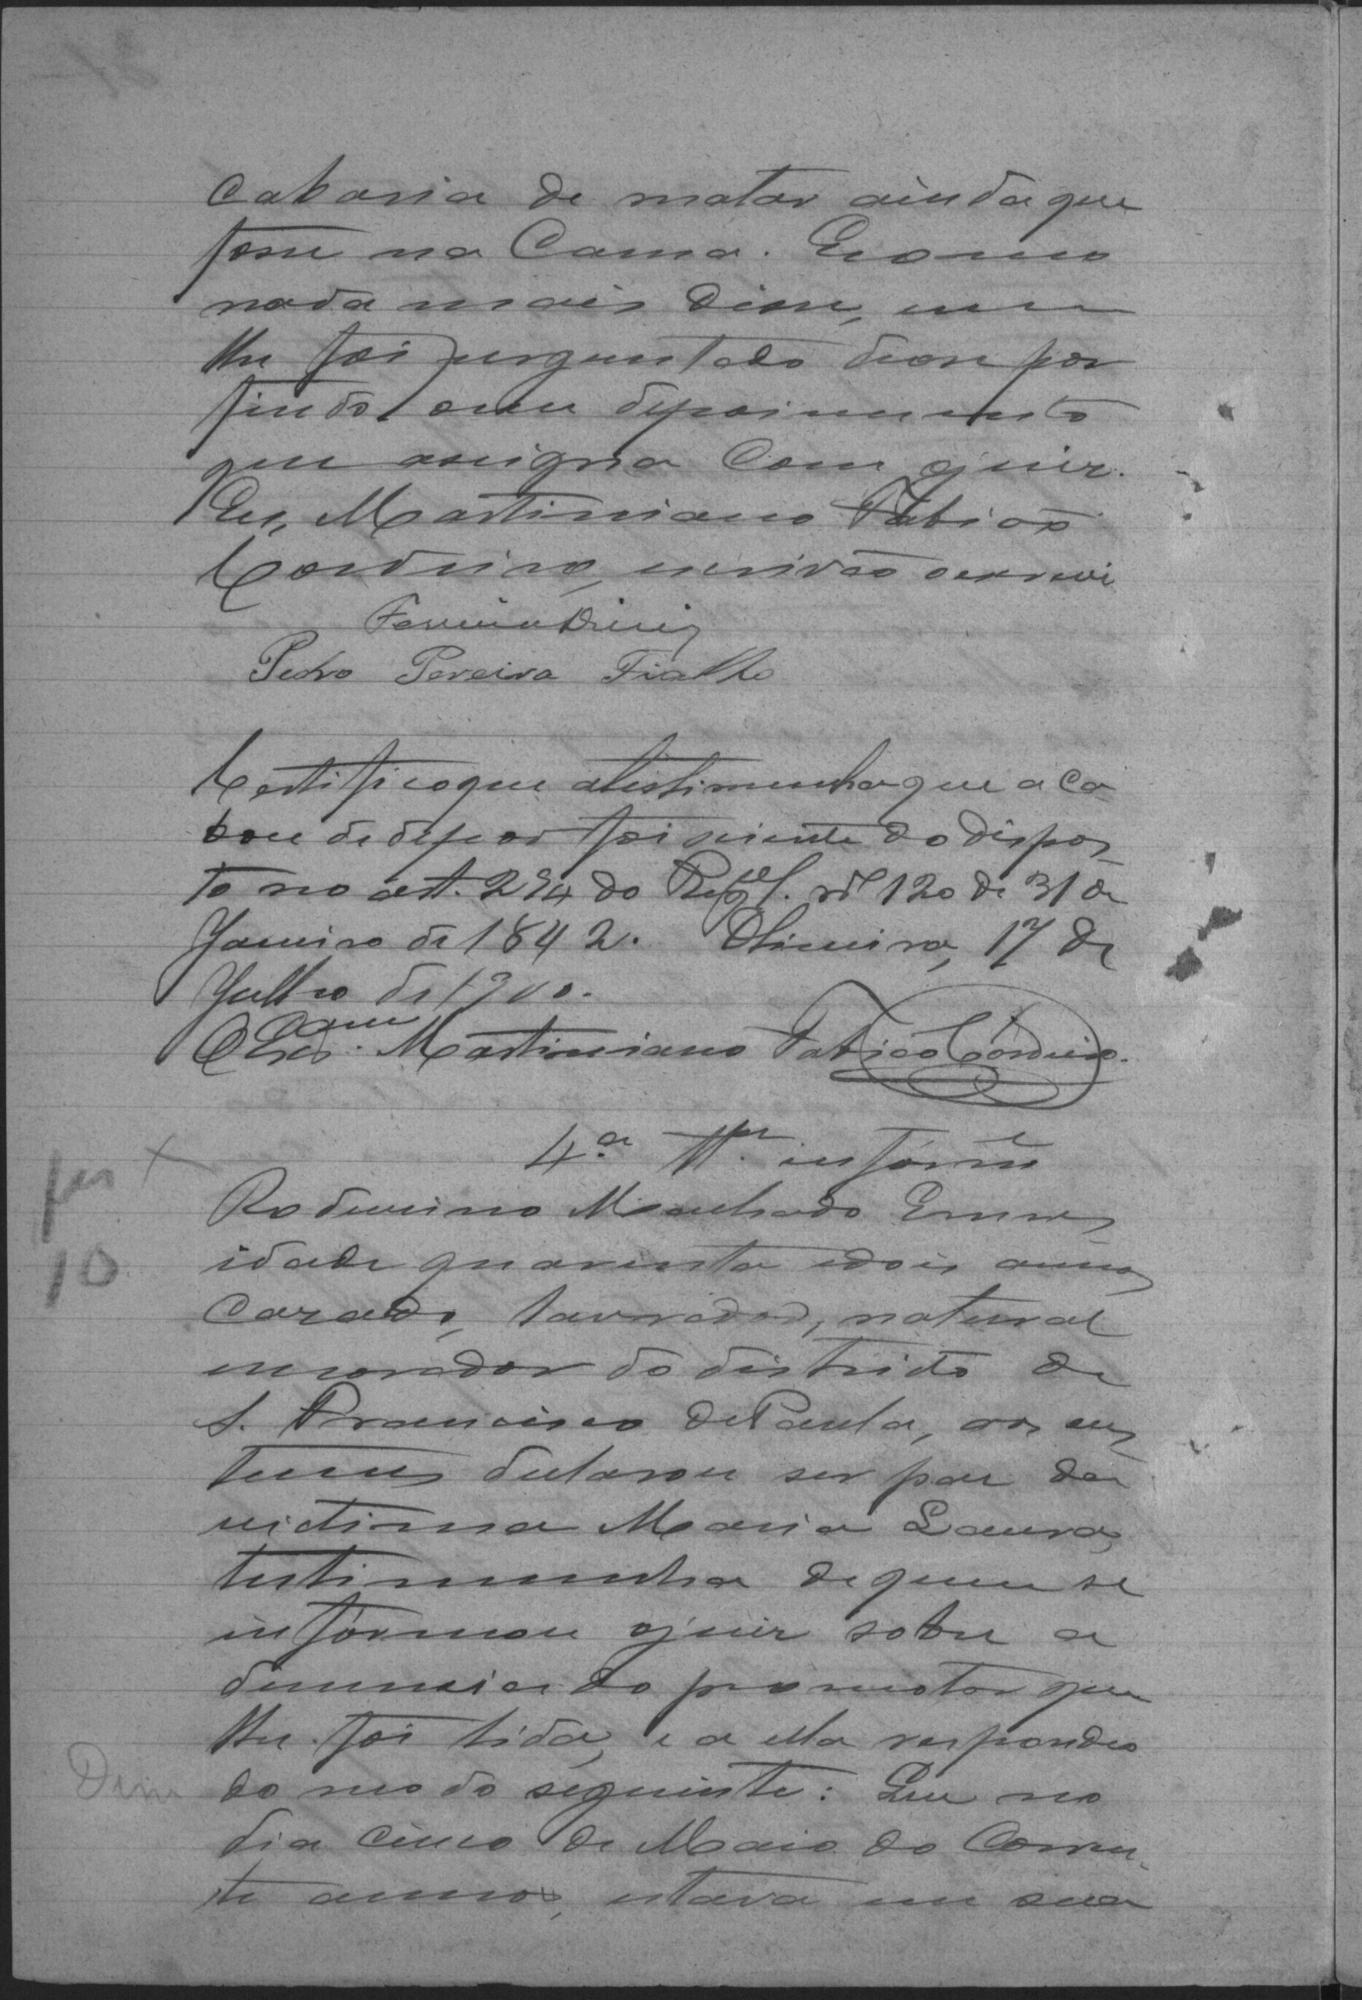 cabaria de matar ainda que
fosse na Cama. E como
nada mais disse, nem
lhe foi perguntado deu-se por
findo o seu depoimento
que assigna com o juiz.
Eu, Martiniano Fabião
Cordeiro, escrivão o escrevi
Pedro Pereira Fialho
Certifico que a testimunha que aca
bou de depor foi sciente do dispos
to no art. 294 do Reg. nº 120 de 31 de
Janeiro de 1842. Oliveira, 17 de
Julho de 1900.
O Escam. Martiniano Fabião Cordeiro.
4.a Ttª. inform
Machado
idade quarenta e dois annos
Cazado, lavrador, natural
e morador do districto de
S. Francisco de Paula, aos cus
tumes declarou ser pae da
victima Maria Laura,
testimunha de quem se
informou o juiz sobre a
denuncia do promotor que
lhe foi lida, e a ella respondeo
do modo seguinte: Que no
dia cinco de Maio do Corren-
te anno, estava em sua
10